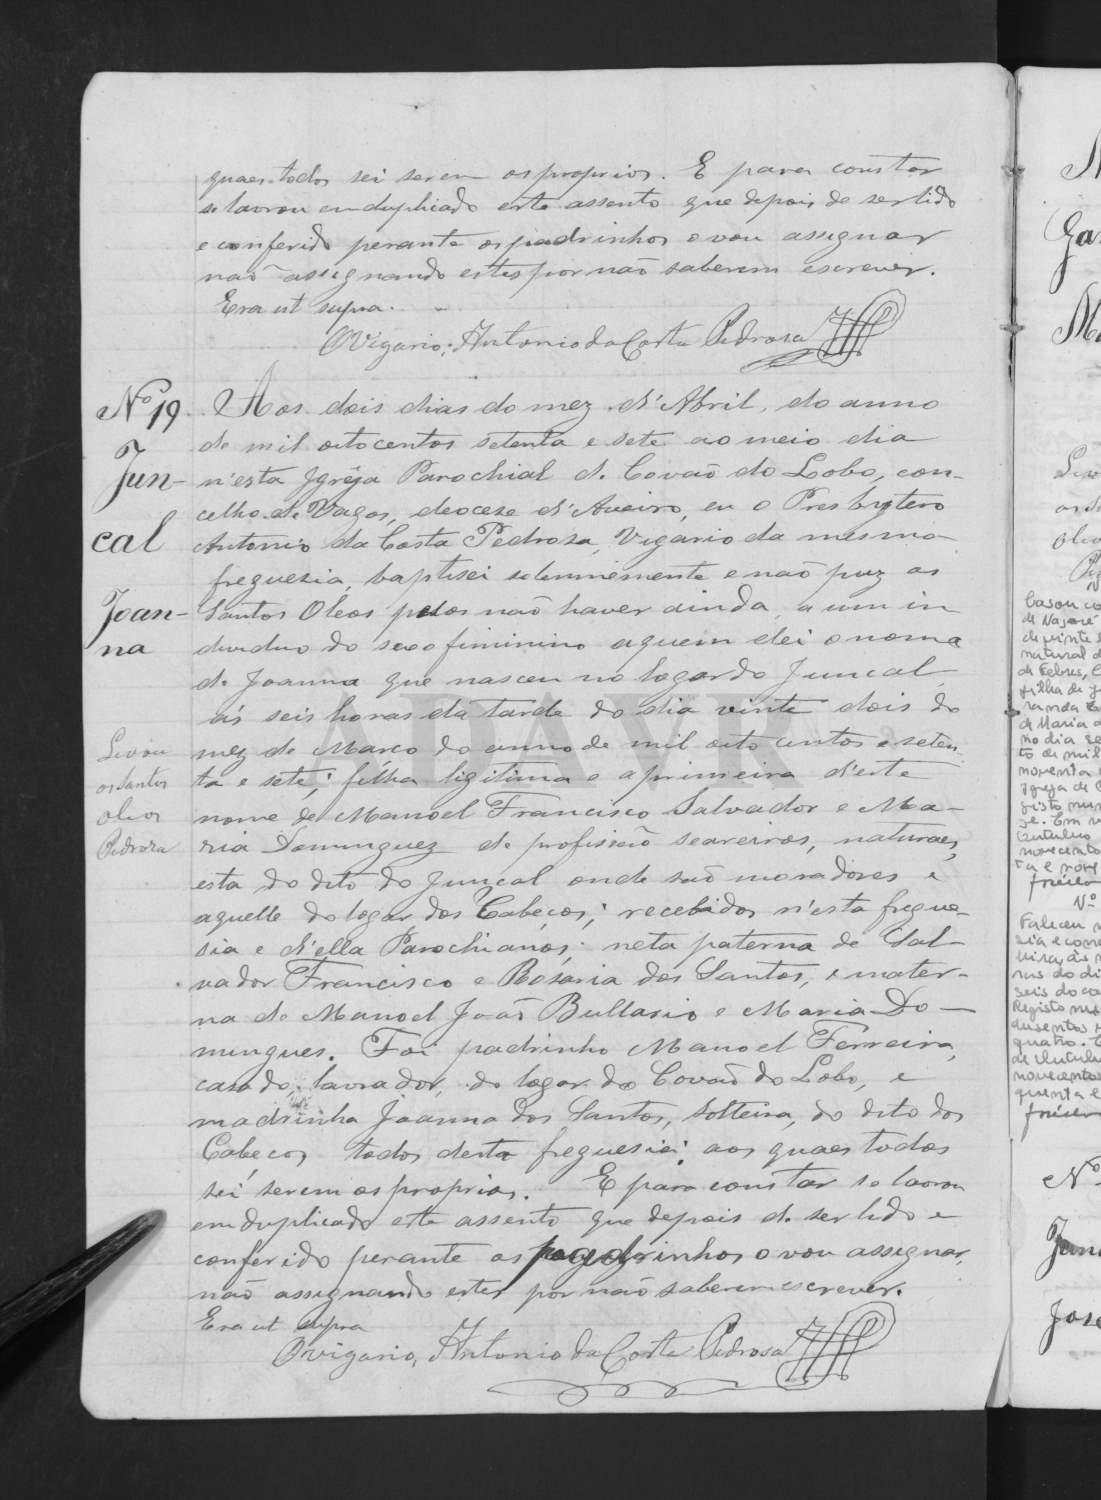 quaes todos sei serem os proprios. E para constar
se lavrou em duplicado este assento que depois de ser lido
e conferido perante os padrinhos o vou assignar
não assignando estes por não saberem escrever.
Era ut supra.
O Vigario, Antonio da Costa Pedrosa
Nº 19
Jun-
cal
Joan-
na
Levou
os santos
oleos
Pedroza
Aos dois dias do mez d'Abril, do anno
de mil oitocentos setenta e sete ao meio dia
n'esta Igrêja Parochial de Covão do Lobo, con-
celho de Vagos, deocese d'Aveiro, eu o Presbytero
Antonio da Costa Pedrosa, Vigario da mesma
freguezia, baptisei solemnemente e não puz os
Santos Oleos pelos não haver ainda, a um in
dividuo do sexo fiminino aquem dei o nome
de Joanna que nasceu no logar do Juncal
ás seis horas da tarde do dia vinte dois do
mez de Março do anno de mil oito centos e seten
ta e sete; filha ligitima e a primeira d'este
nome de Manoel Francisco Salvador e Ma-
ria Dominguez de profissão seareiros, naturaes,
esta do dito do Juncal onde são moradores e
aquelle do logar dos Cabeços; recebidos n'esta fregue-
sia e d'ella Parochianos; neta paterna de Sal-
vador Francisco e Rosaria dos Santos, e mater-
na de Manoel João Bullario e Maria Do-
mingues. Foi padrinho Manoel Ferreira,
casado, lavrador, do logar do Covão do Lobo, e
madrinha Joanna dos Santos, solteira, do dito dos
Cabeços todos desta freguesia; aos quaes todos
sei serem os proprios. E para constar se lavrou
em duplicado este assento que depois de ser lido e
conferido perante os padrinhos o vou assignar,
não assignando estes por não saberem escrever.
Era ut supra
O vigario, Antonio da Costa Pedrosa
ADAVR